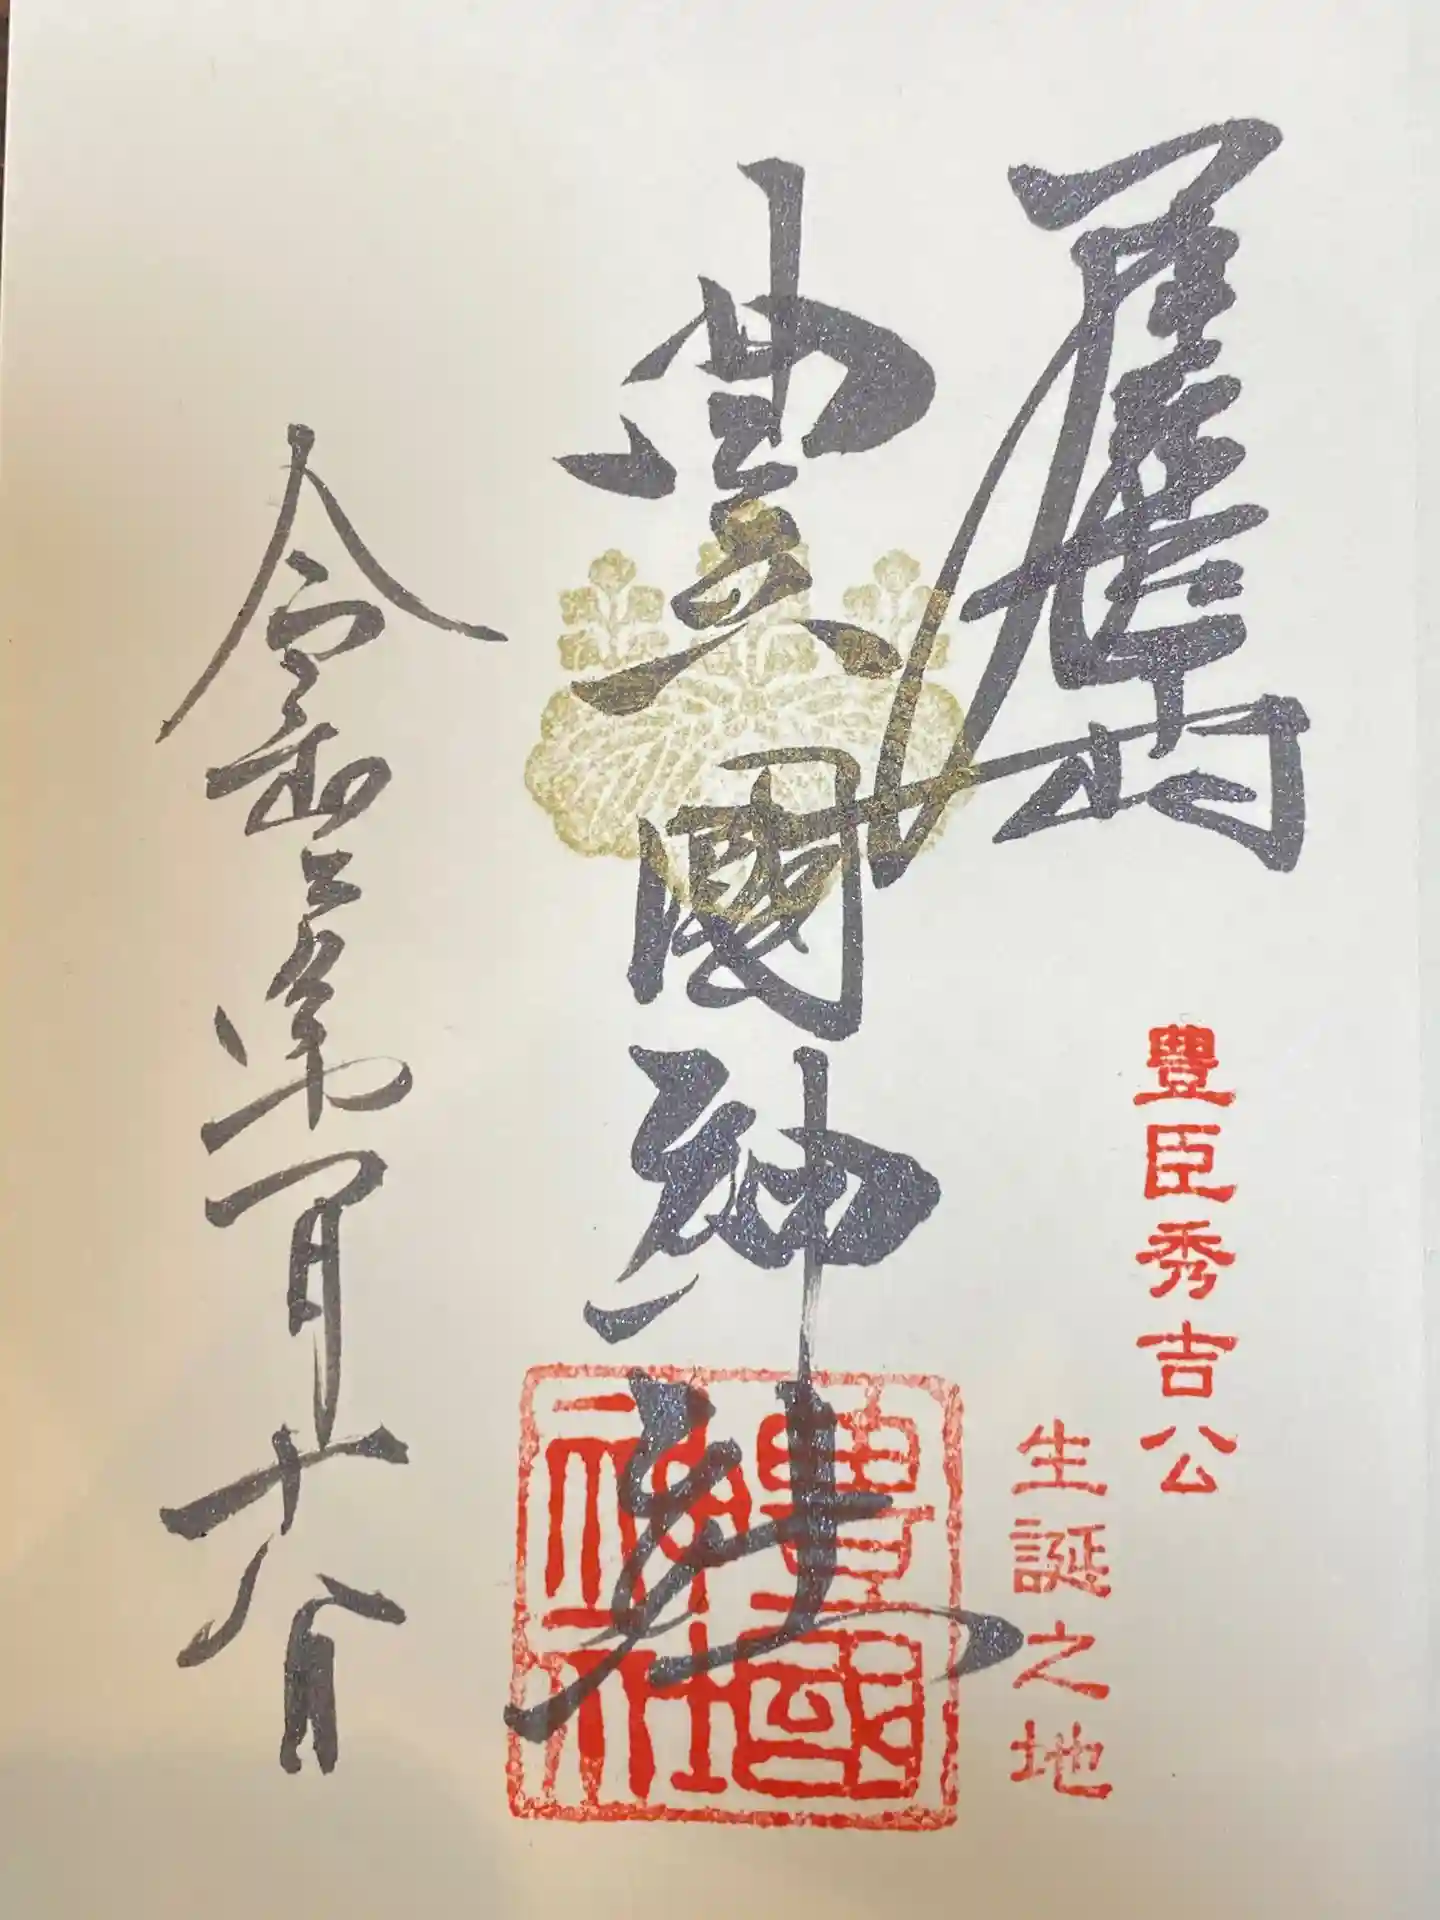 豊臣秀吉公
生誕之地
豊國神社
豊國
神社
令和三年一月十八日